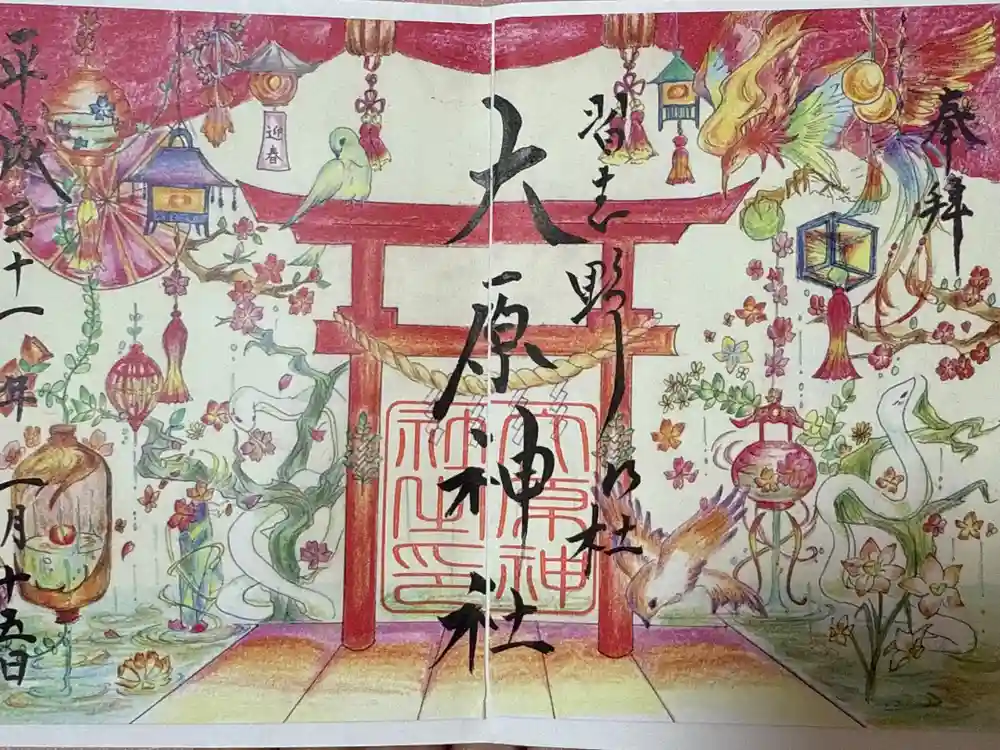 奉拝
習志野乃杜
大原神社
大原神
社之印
迎春
平成三十一年一月十五日